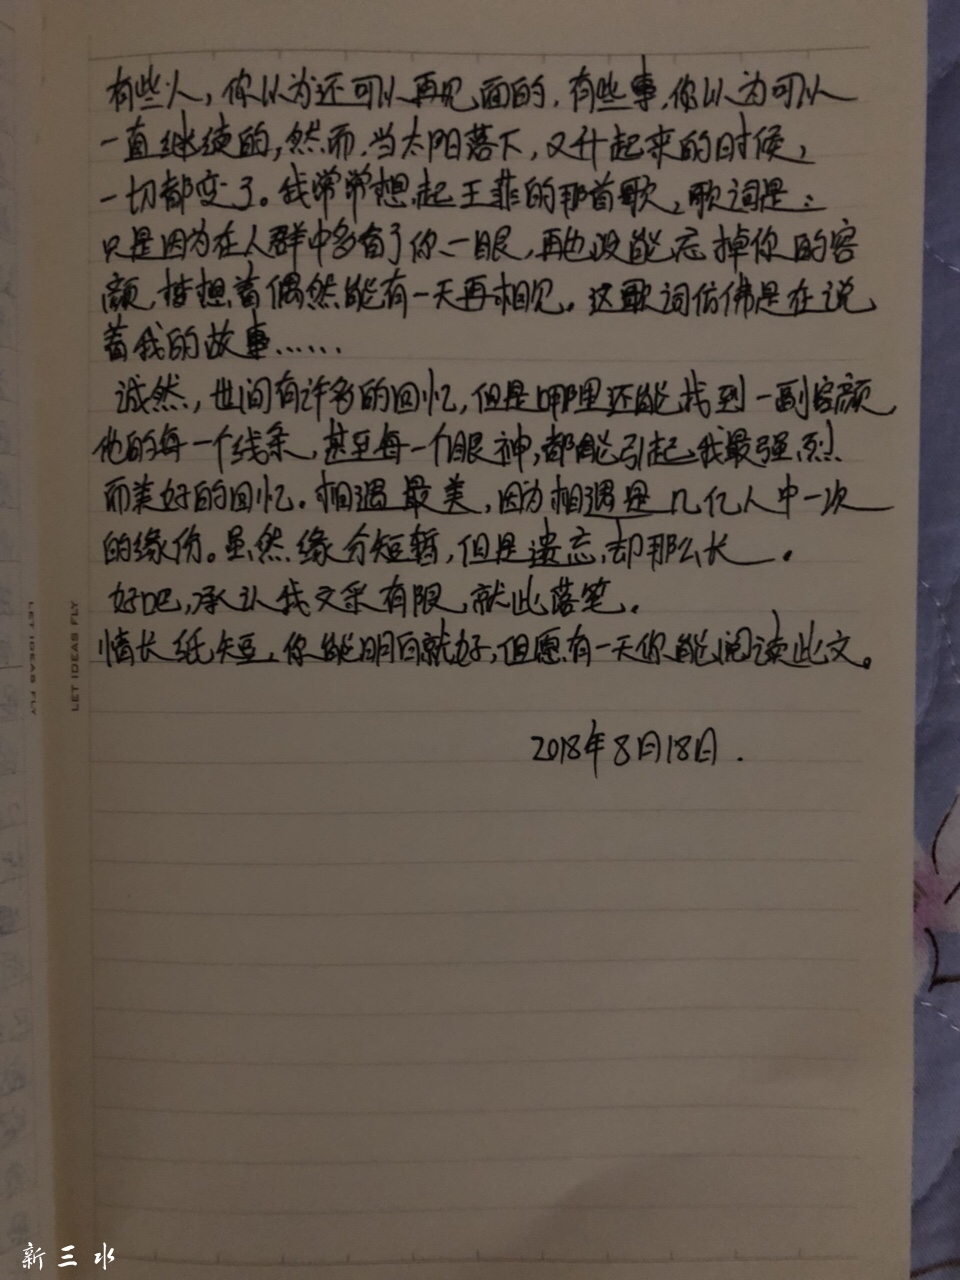 有些人，你以为还可以再见面的，有些事，你以为可以
一直继续的，然而，当太阳落下，又升起来的时候，
一切都变了。我常常想起王菲的那首歌，歌词是：
只是因为在人群中多看了你一眼，再也没能忘掉你的容
颜，梦想着偶然能有一天再相见。这歌词仿佛是在说
着我的故事……
诚然，世间有许多的回忆，但是哪里还能找到一副容颜
他的每一个线条，甚至每一个眼神，都能引起我最强烈
而美好的回忆。相遇最美，因为相遇是几亿人中一次
的缘份。虽然缘分短暂，但是遗忘，却那么长。
好吧，承认我文采有限，就此落笔。
情长纸短，你能明白就好，但愿有一天你能阅读此文。
2018年8月18日.
LET IDEAS FLY
LET IDEAS FLY
新三水